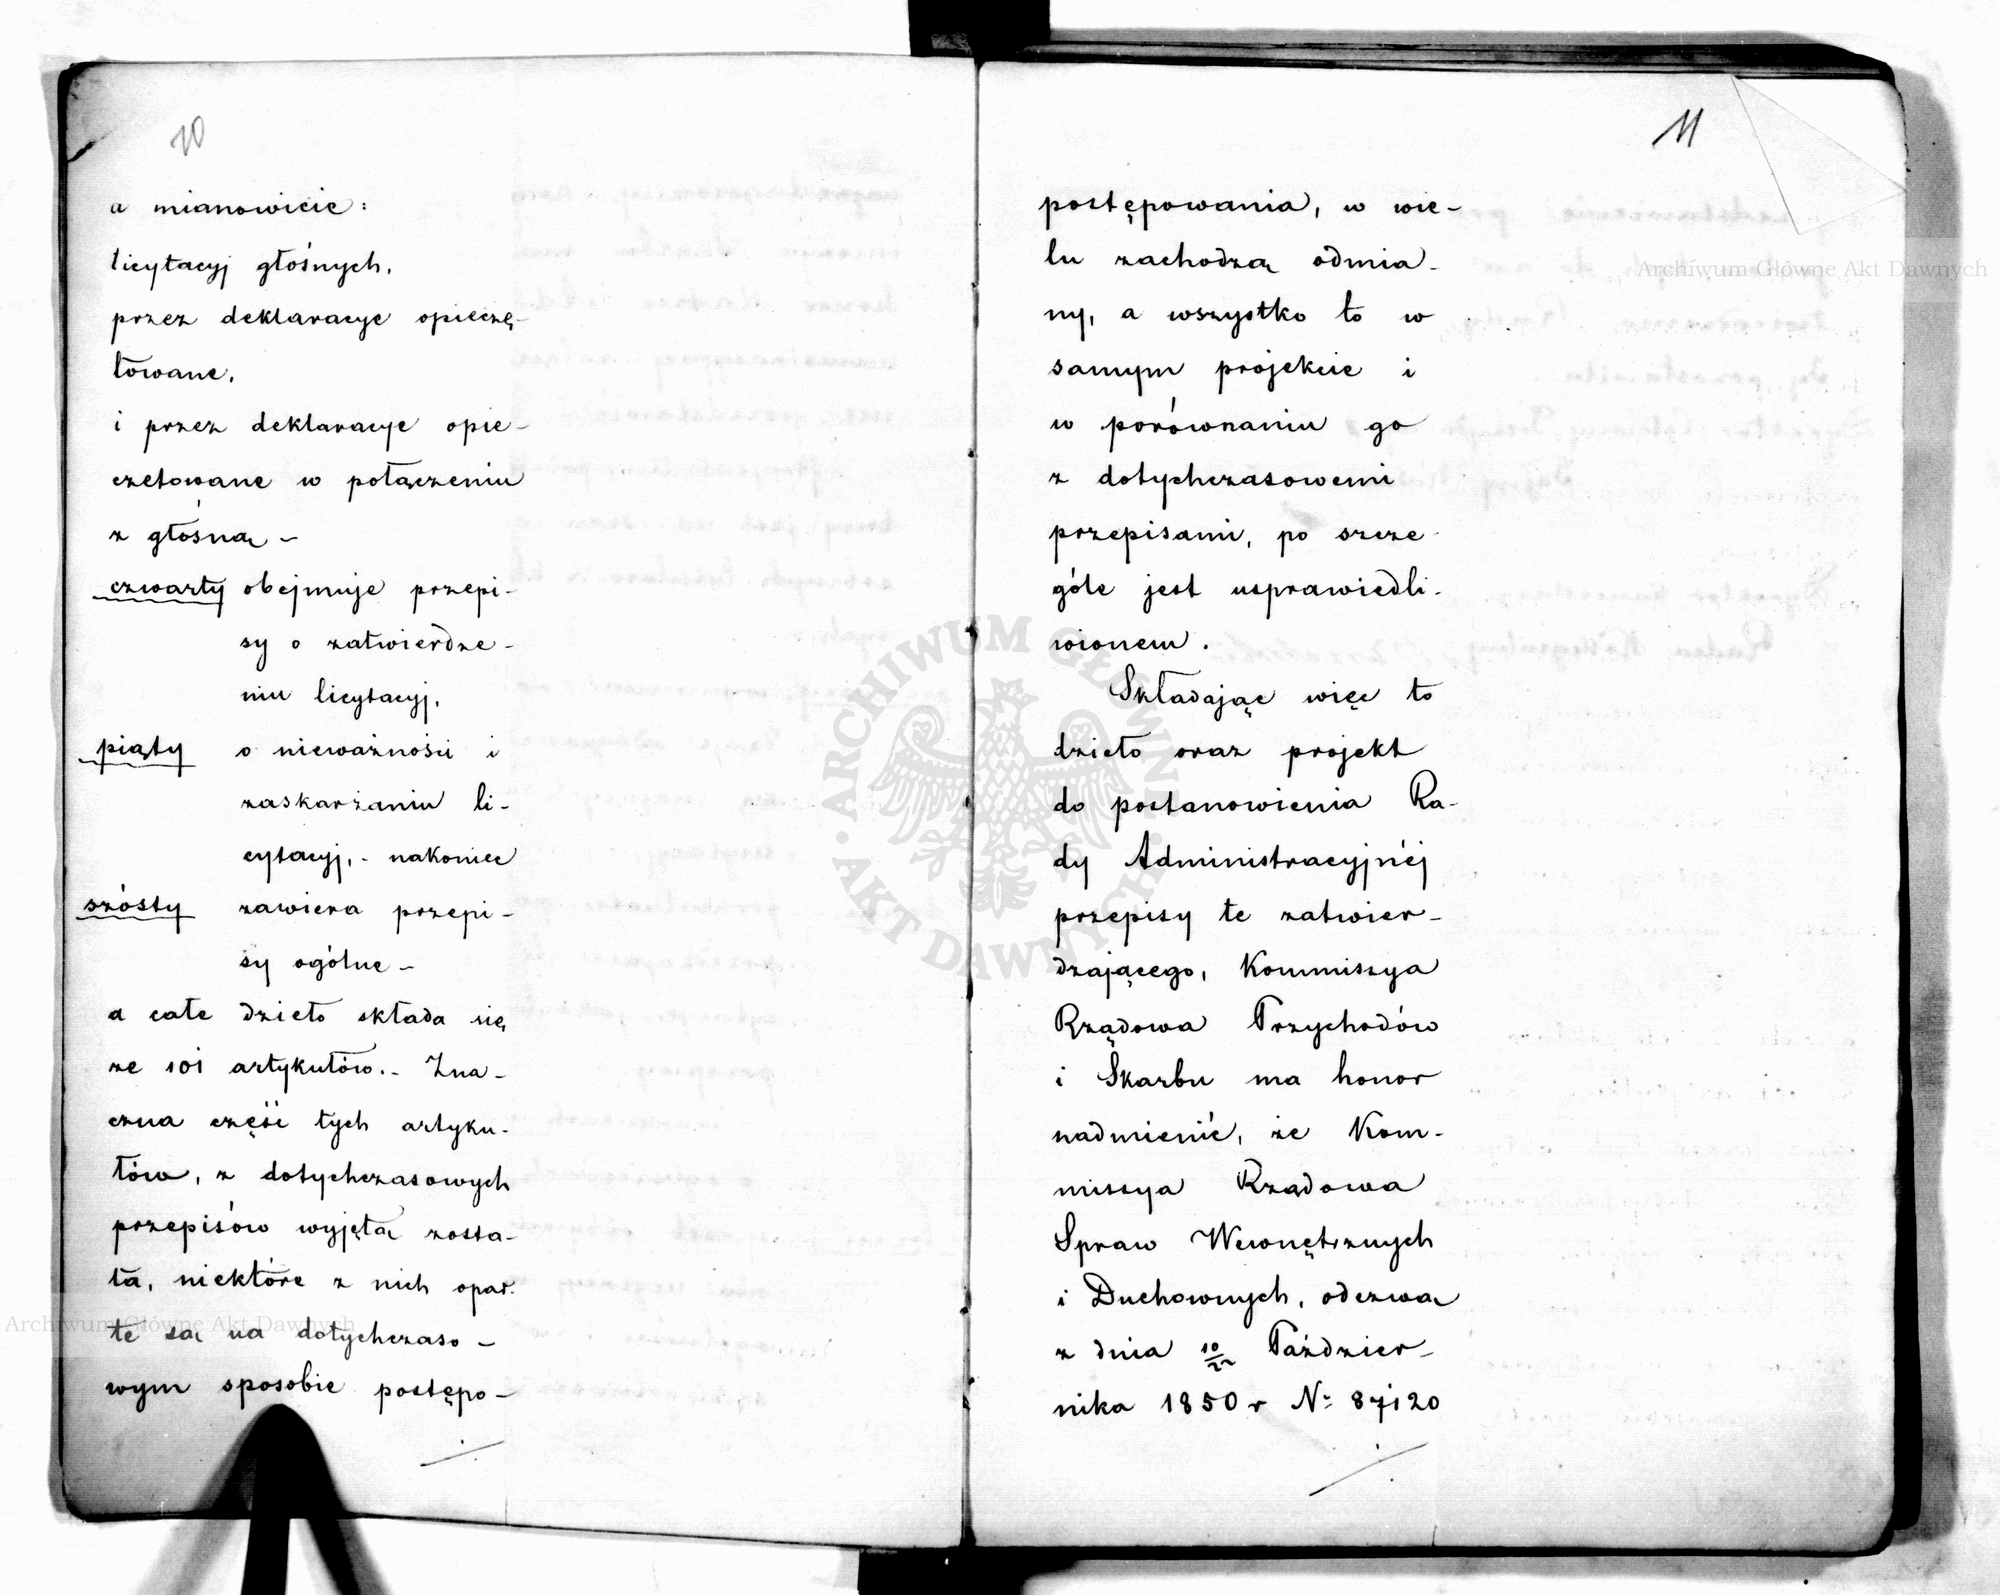 10
a mianowicie:
licytacyj głośnych,
przez deklaracye opieczę-
towane,
i przez deklaracye opie-
czetowane w połączeniu
z głośną –
czwarty obejmuje przepi-
sy o zatwierdze-
niu licytacyj,
piąty o nieważności i
zaskarżaniu li-
cytacyj, - nakoniec
szósty zawiera przepi-
sy ogólne –
a całe dzieło składa się
ze 101 artykułów. - Zna-
czna część tych artyku-
łów, z dotychczasowych
przepisów wyjętą zosta-
ła, niektóre z nich opar-
te są na dotychczaso-
wym sposobie postępo-
11
postępowania, w wie-
lu zachodzą odmia-
ny, a wszystko to w
samym projekcie i
w porównaniu go
z dotychczasowemi
przepisami, po szcze-
góle jest usprawiedli-
wionem.
Składając więc to
dzieło oraz projekt
do postanowienia Ra-
dy Administracyjnéj
przepisy te zatwier-
dzającego, Kommissya
Rządowa Przychodów
i Skarbu ma honor
nadmienić, że Kom-
missya Rządowa
Spraw Wewnętrznych
i Duchownych, odezwą
z dnia 10/22 Paździer-
nika 1850 r № 87120
ARCHIWUM GŁÓWNE · AKT DAWNYCH ·
Archiwum Główne Akt Dawnych
Archiwum Główne Akt Dawnych